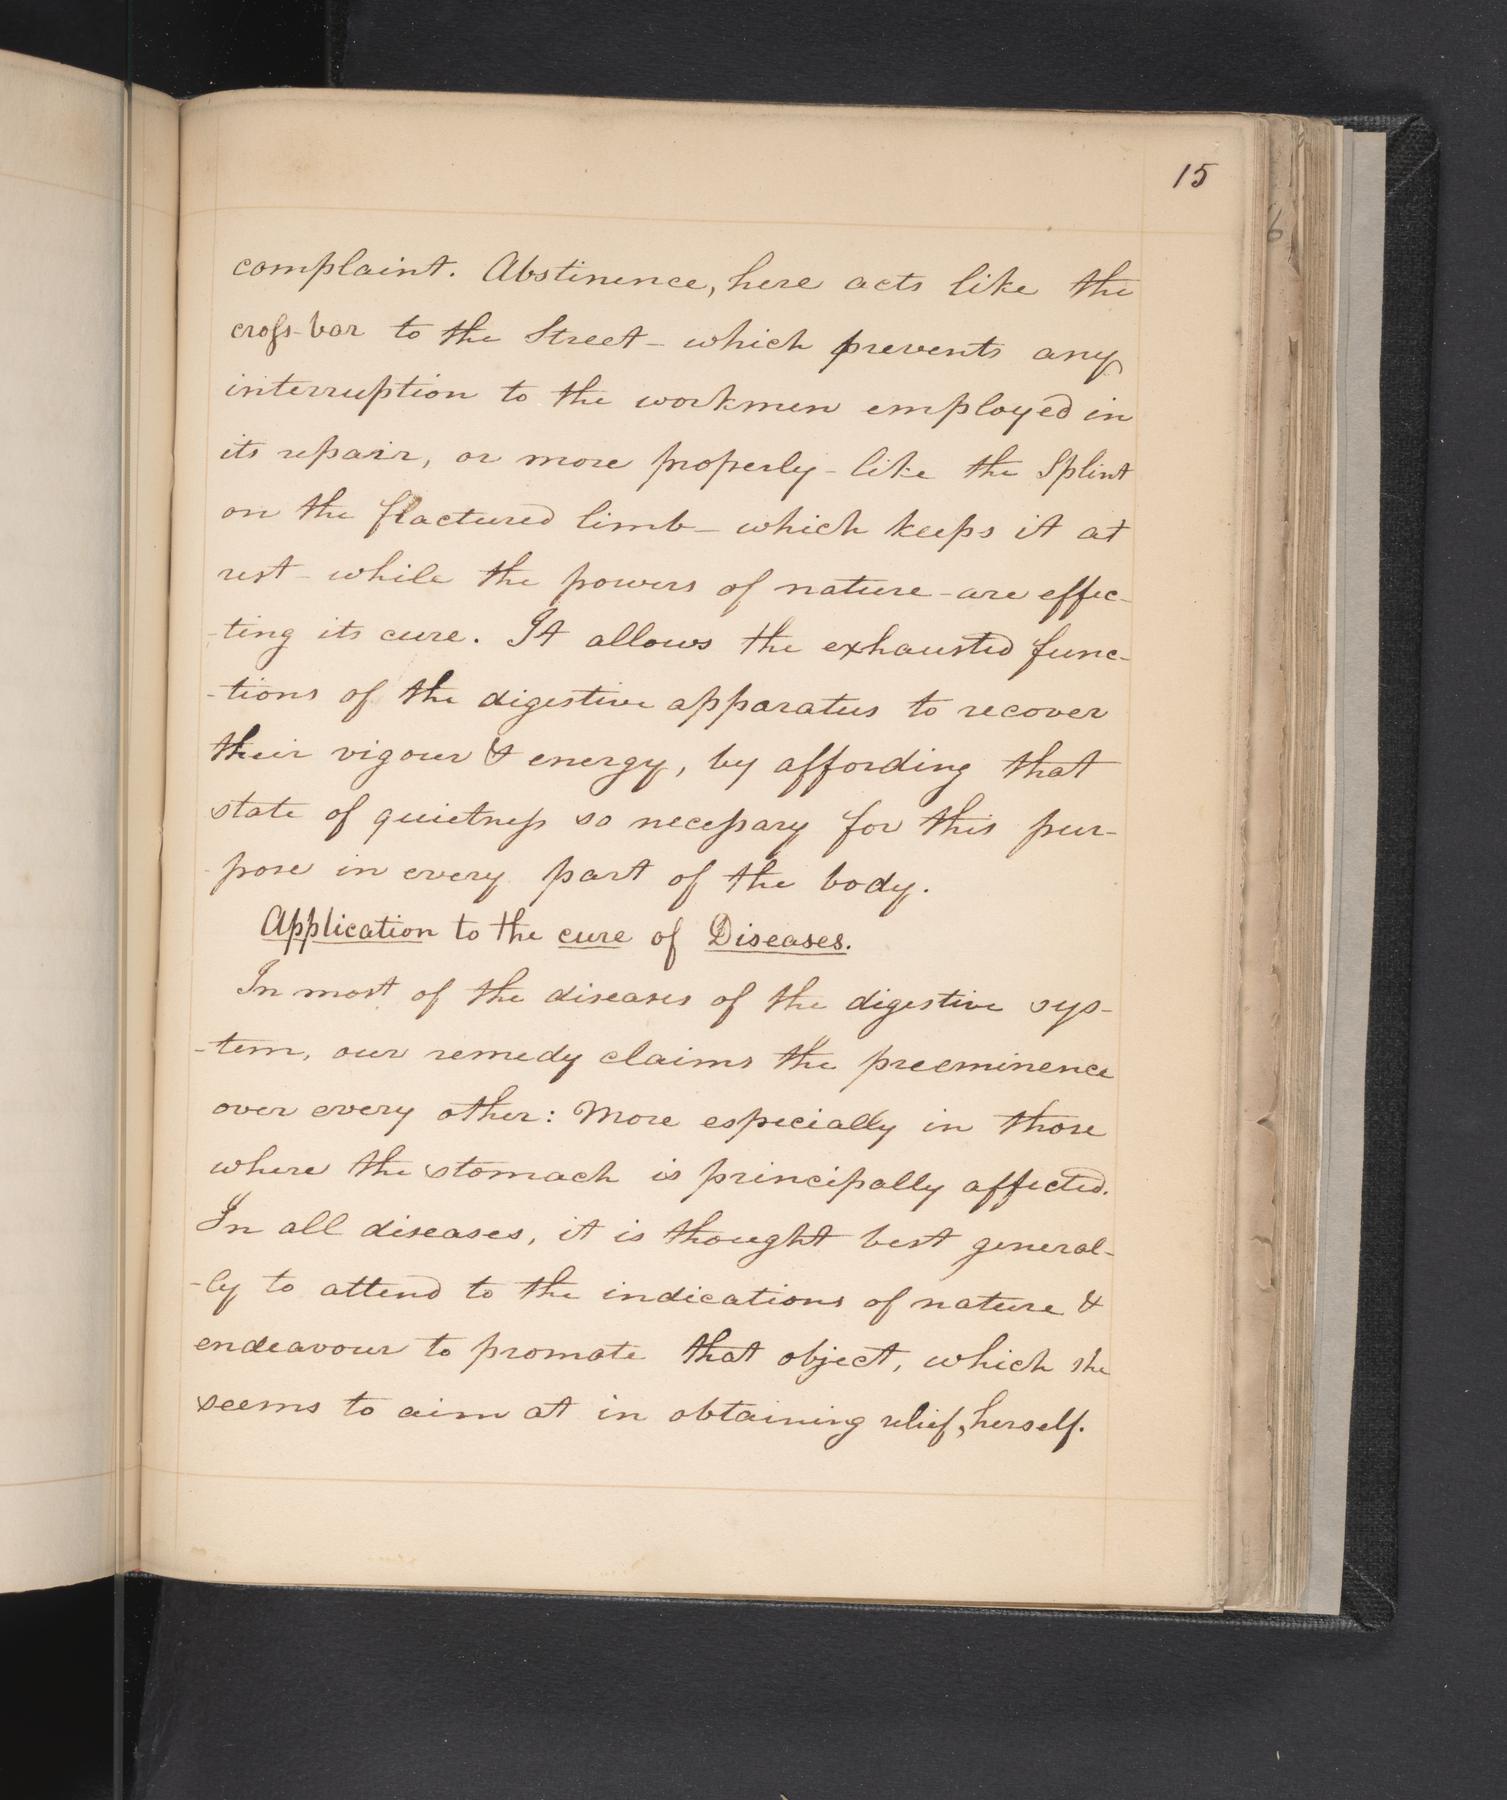 15
complaint. Abstinence, here acts like the
cross-bar to the Street - which prevents any
interruption to the workmen employed in
its repair, or more properly - like the Splint
on the fractured limb - which keeps it at
rest - while the powers of nature - are effec-
-ting its cure. It allows the exhausted func-
-tions of the digestive apparatus to recover
their vigour & energy, by affording that
state of quietness so necessary for this pur-
-pose in every part of the body.
Application to the cure of Diseases.
In most of the diseases of the digestive sys-
-tem, our remedy claims the preeminence
over every other: More especially in those
where the stomach is principally affected.
In all diseases, it is thought best general-
-ly to attend to the indications of nature &
endeavour to promote that object, which she
seems to aim at in obtaining relief, herself.